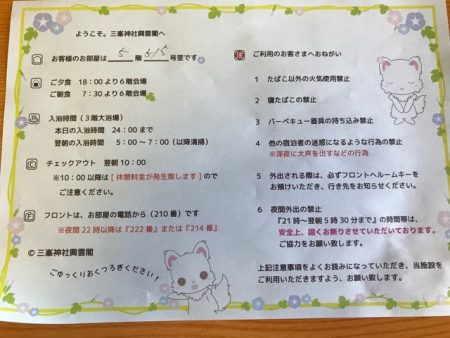 ようこそ。三峯神社興雲閣へ
お客様のお部屋は 5 階 515 号室です
ご夕食 18:00より6階会場
ご朝食 7:30より6階会場
入浴時間(3階大浴場)
本日の入浴時間 24:00まで
翌朝の入浴時間 5:00~7:00(以降清掃)
C チェックアウト 翌朝10:00
※10:00以降は[休憩料金が発生致します]ので
ご注意ください。
F フロントは、お部屋の電話から(210番)です
※夜間22時以降は『222番』または『214番』
© 三峯神社興雲閣
ごゆっくりおくつろぎください!
ご利用のお客さまへおねがい
1 たばこ以外の火気使用禁止
2 寝たばこの禁止
3 バーベキュー器具の持ち込み禁止
4 他の宿泊者の迷惑になるような行為の禁止
※深夜に大声を出すなどの行為
5 外出される際は、必ずフロントへルームキーを
お預けいただき、行き先をお知らせください。
6 夜間外出の禁止
『21時~翌朝5時30分まで』の時間帯は、
安全上、固くお断りさせていただいております。
ご協力をお願い致します。
上記注意事項をよくお読みになっていただき、当施設を
ご利用いただきますよう、お願い致します。